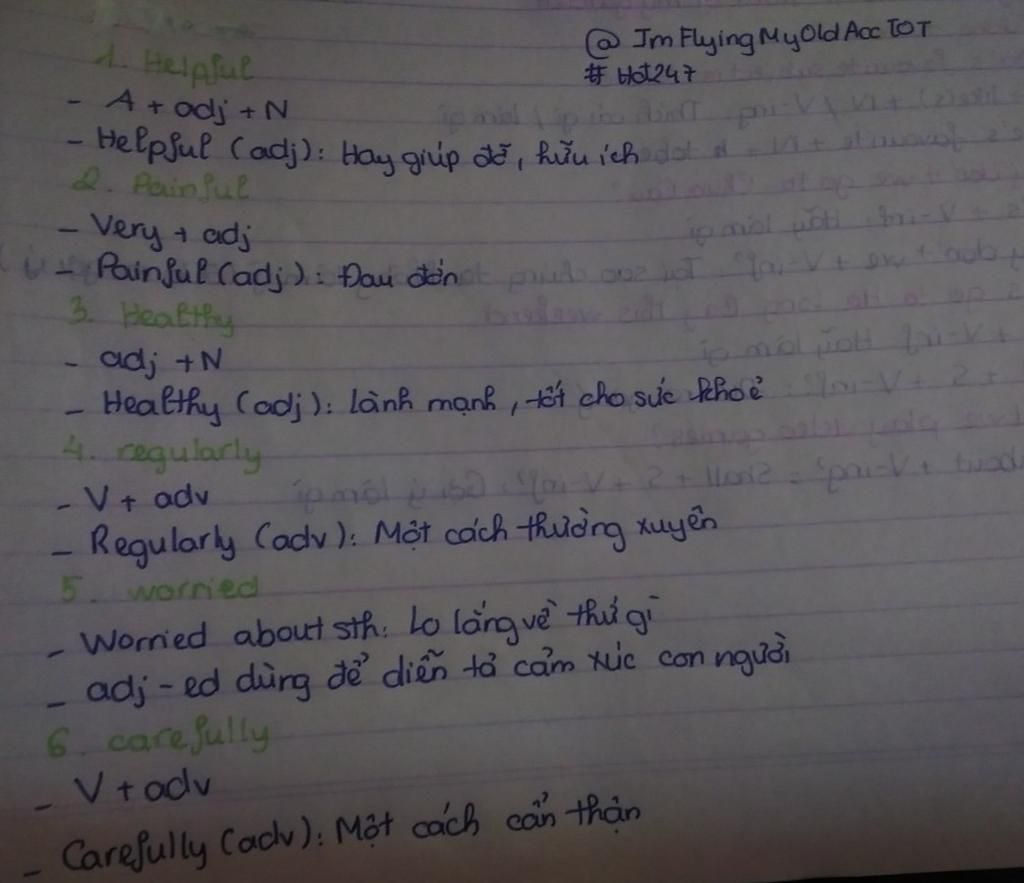 @ImFlyingMyOldAccTOT
#Hot247
1. Helpful
- A + adj + N
- Helpful (adj): Hay giúp đỡ, hữu ích
2. Painful
- Very + adj
- Painful (adj): Đau đớn
3. Healthy
- adj + N
- Healthy (adj): lành mạnh, tốt cho sức khoẻ
4. regularly
- V + adv
- Regularly (adv): Một cách thường xuyên
5. worried
- Worried about sth: Lo lắng về thứ gì
- adj-ed dùng để diễn tả cảm xúc con người
6. carefully
- V + adv
- Carefully (adv): Một cách cẩn thận